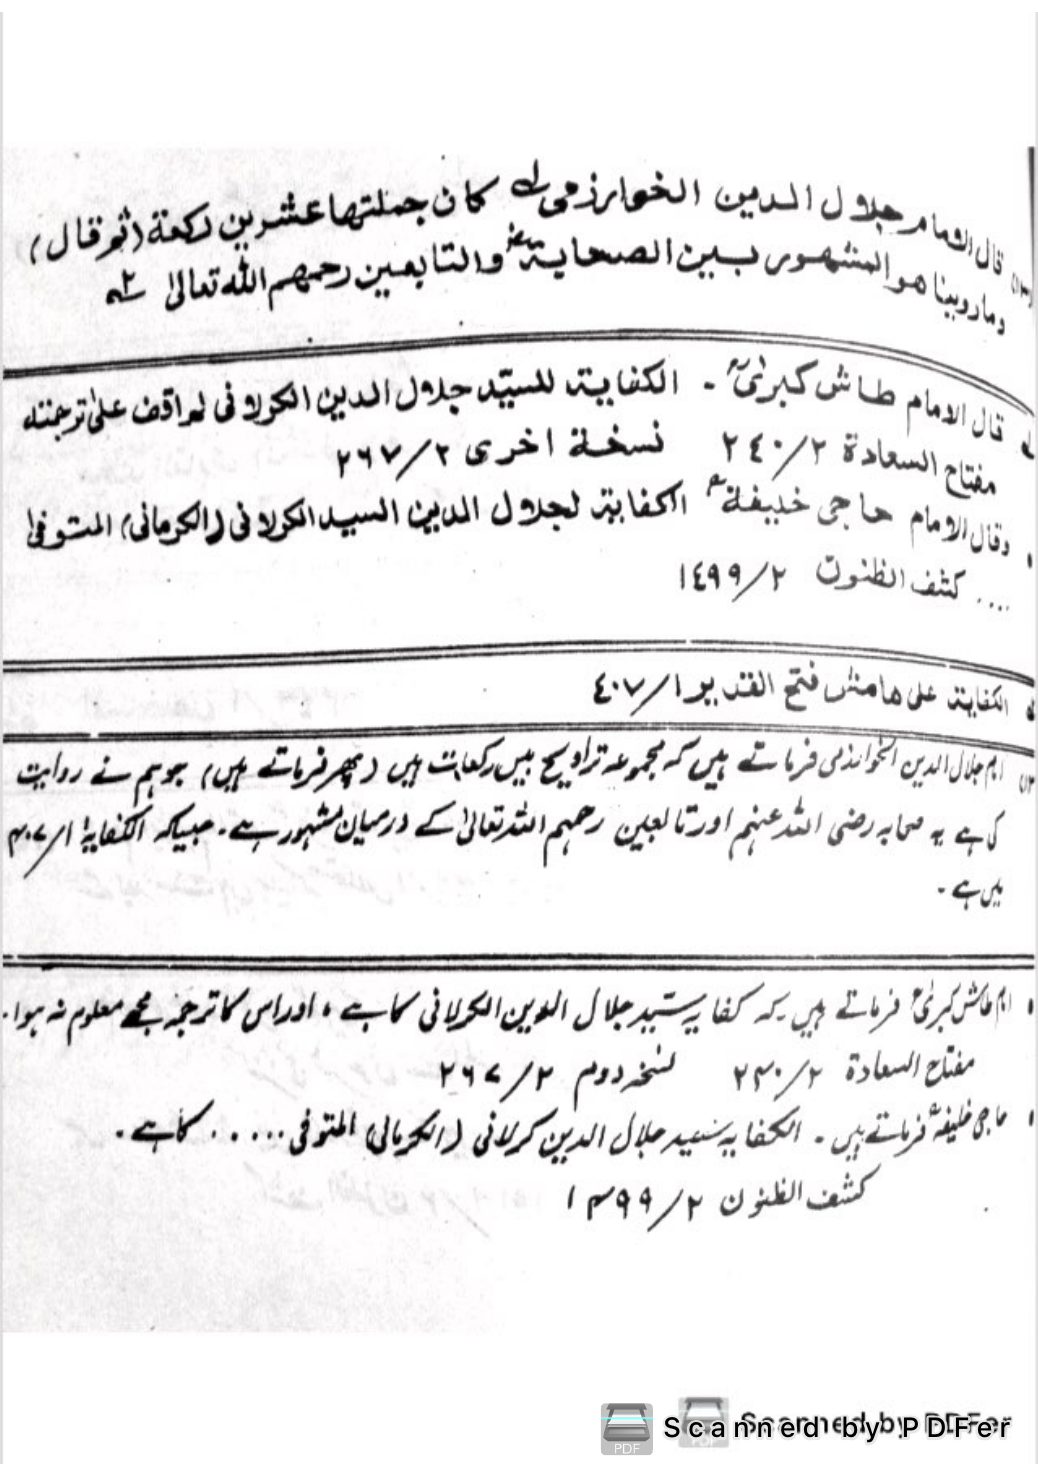 (١٣) قال الامام جلال الدين الخوارزمی لے كان جملتها عشرين ركعة (ثم قال)
وما روينا هو المشهور بين الصحابة رض والتابعين رحمهم الله تعالیٰ ٢ے
لے قال الامام طاش كبریٰ ؒ - الكفاية للسيّد جلال الدين الكرلانی لم اقف علیٰ ترجمته
مفتاح السعادة ٢/٢٤٠ نسخة اخری ٢/٢٦٧
• وقال الامام حاجی خليفة ؒ الكفاية لجلال الدين السيد الكرلانی (الكرمانی) المتوفیٰ
.... كشف الظنون ٢/١٤٩٩
الكفاية علی هامش فتح القدير ١/٤٠٧
(١٣) امام جلال الدین الخوارزمی فرماتے ہیں کہ مجموعہ تراویح بیس رکعات ہیں (پھر فرماتے ہیں) جو ہم نے روایت
کی ہے یہ صحابہ رضی اللہ عنہم اور تابعین رحمہم اللہ تعالیٰ کے درمیان مشہور ہے۔ جیساکہ الکفایۃ ۱/۴۰۷
میں ہے۔
• امام طاش کبریٰ ؒ فرماتے ہیں کہ کفایہ سیّد جلال الدین الکرلانی کا ہے، اور اس کا ترجمہ مجھے معلوم نہ ہوا۔
مفتاح السعادة ۲/۲۴۰ نسخہ دوم ۲/۲۶۷
• حاجی خلیفہ ؒ فرماتے ہیں۔ الکفایہ سید جلال الدین کرلانی (الکرمانی) المتوفی..... کا ہے۔
کشف الظنون ۲/۱۴۹۹
Scanned by PDFer
Scanned by PDFer
PDF
PDF